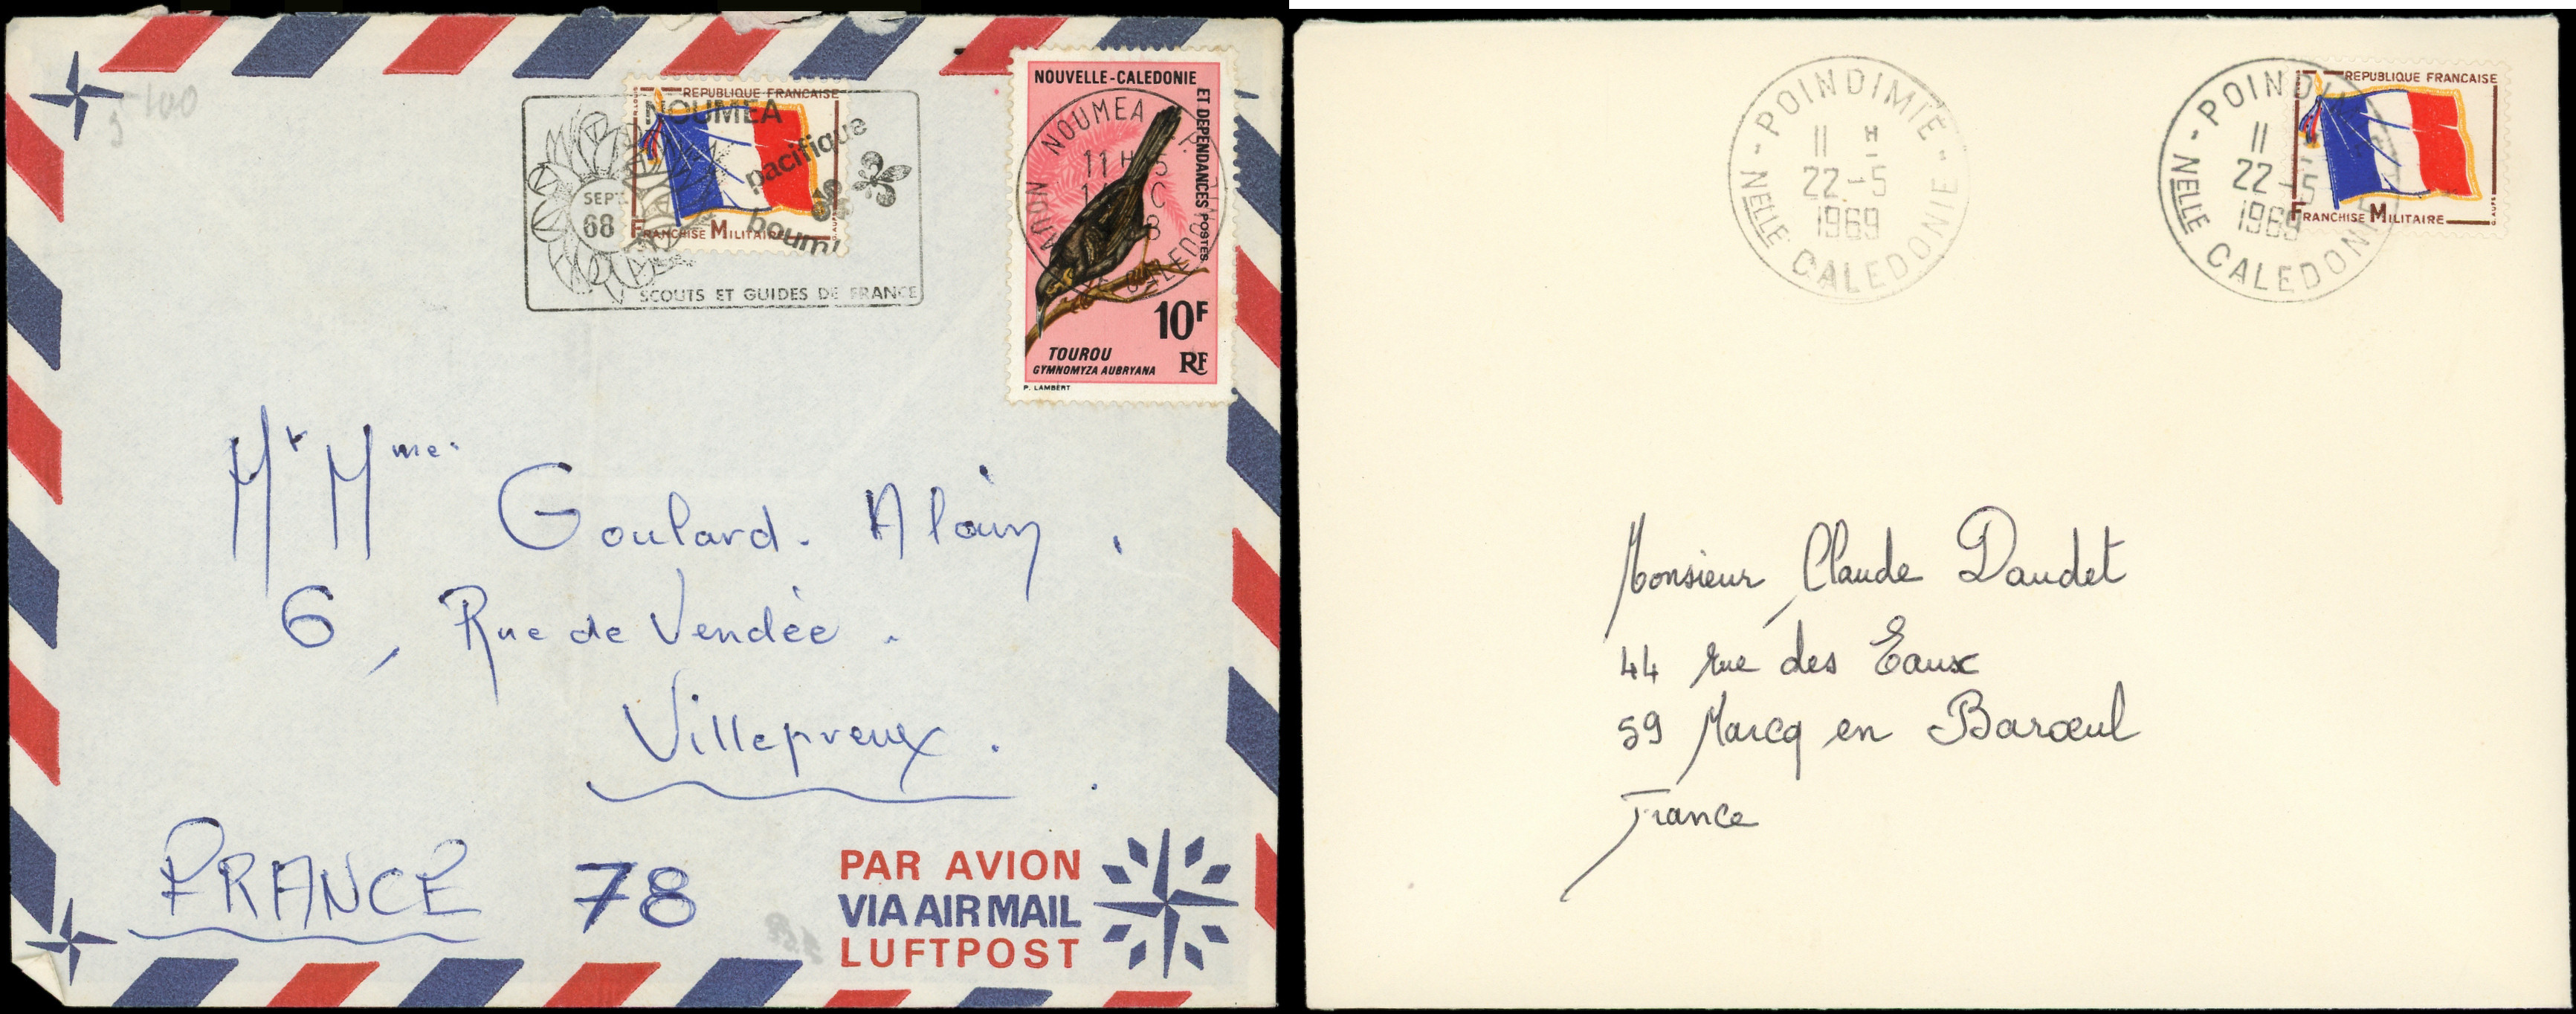 5 100
REPUBLIQUE FRANCAISE
NOUMEA
pacifique
SEPT.
68
boum!
FRANCHISE MILITAIRE
SCOUTS ET GUIDES DE FRANCE
NOUVELLE-CALEDONIE
ET DEPENDANCES POSTES
NOUMEA R.P.
11 H
CALEDONIE
10F
TOUROU
GYMNOMYZA AUBRYANA
RF
P. LAMBERT
Mr Mme.
Goulard. Alain.
6, Rue de Vendée.
Villepreux.
FRANCE 78
PAR AVION
VIA AIR MAIL
LUFTPOST
- POINDIMIE -
11 H
22-5
1969
NELLE CALEDONIE
- POINDIMIE -
11 H
22-5
1969
NELLE CALEDONIE
REPUBLIQUE FRANCAISE
FRANCHISE MILITAIRE
Monsieur Claude Daudet
44 rue des Eaux
59 Marcq en Barœul
France